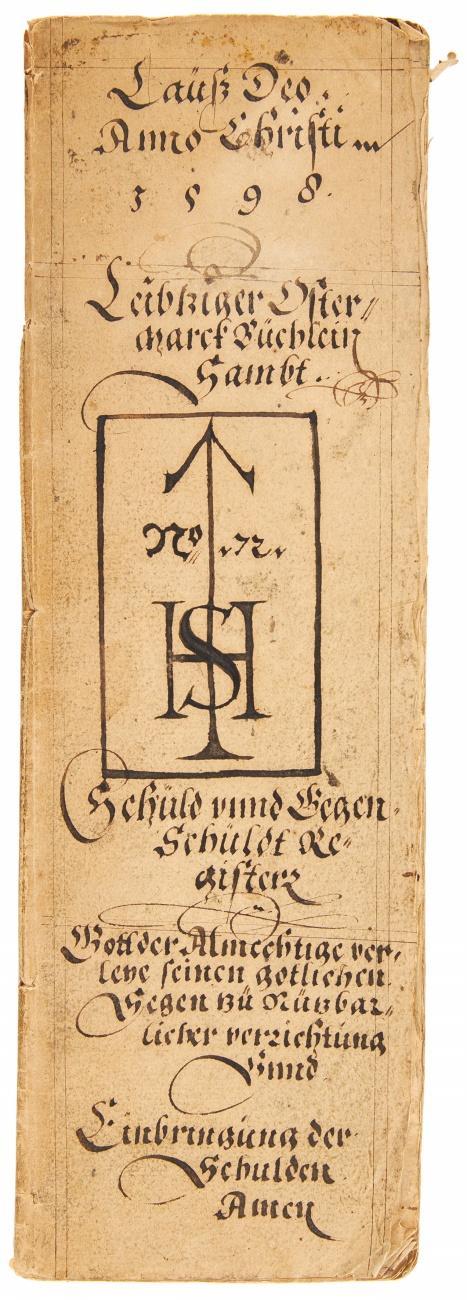 Lauß Deo.
Anno Christi in
1 5 9 8.
Leibtziger Oster-
marck Büchlein
Sambt.
No. 72.
HS
Schüld vnnd Gegen-
Schüldt Re-
gisterr
Gott der Almechtige ver-
leye seinen gotlichen
Segen zü Nützbar-
licher verrichtüng
Vnnd
Einbringüng der
Schulden
Amen